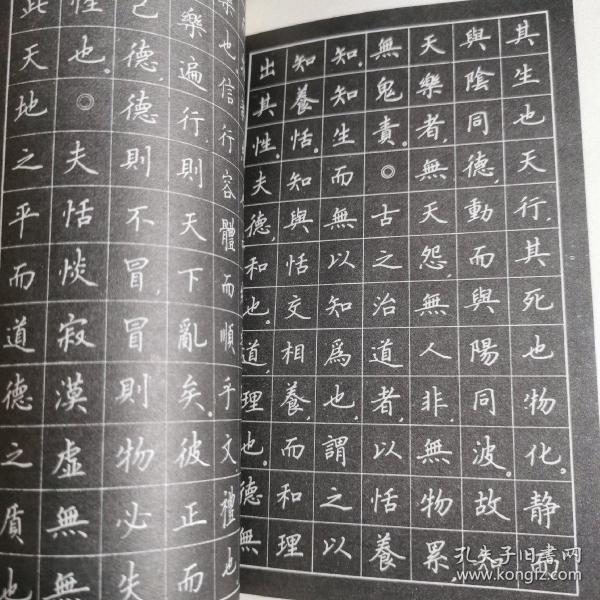 其生也天行,其死也物化。静而
與陰同德,動而與陽同波。故知
天樂者,無天怨,無人非,無物累,
無鬼責。◎古之治道者,以恬養
知。知生而無以知爲也,謂之以
知養恬。知與恬交相養,而和理
出其性。夫德,和也。道,理也。德無
樂也信行容體而順乎文,禮也
樂遍行,則天下亂矣。彼正而
己德,德則不冒,冒則物必失
性也。◎夫恬惔寂漠虛無無
此天地之平而道德之質也
孔夫子旧书网
www.kongfz.com